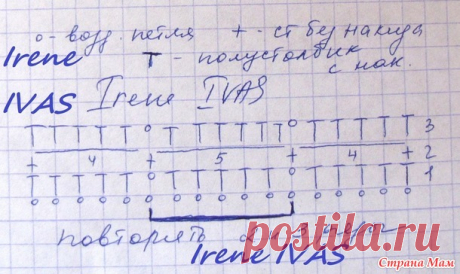 о- возд. петля + - ст без накида
Irene Т - полустолбик
с нак.
IVAS Irene IVAS
3
+ 4 + 5 + 4 + 2
1
повторять
Irene IVAS
postila.ru
Страна Мам